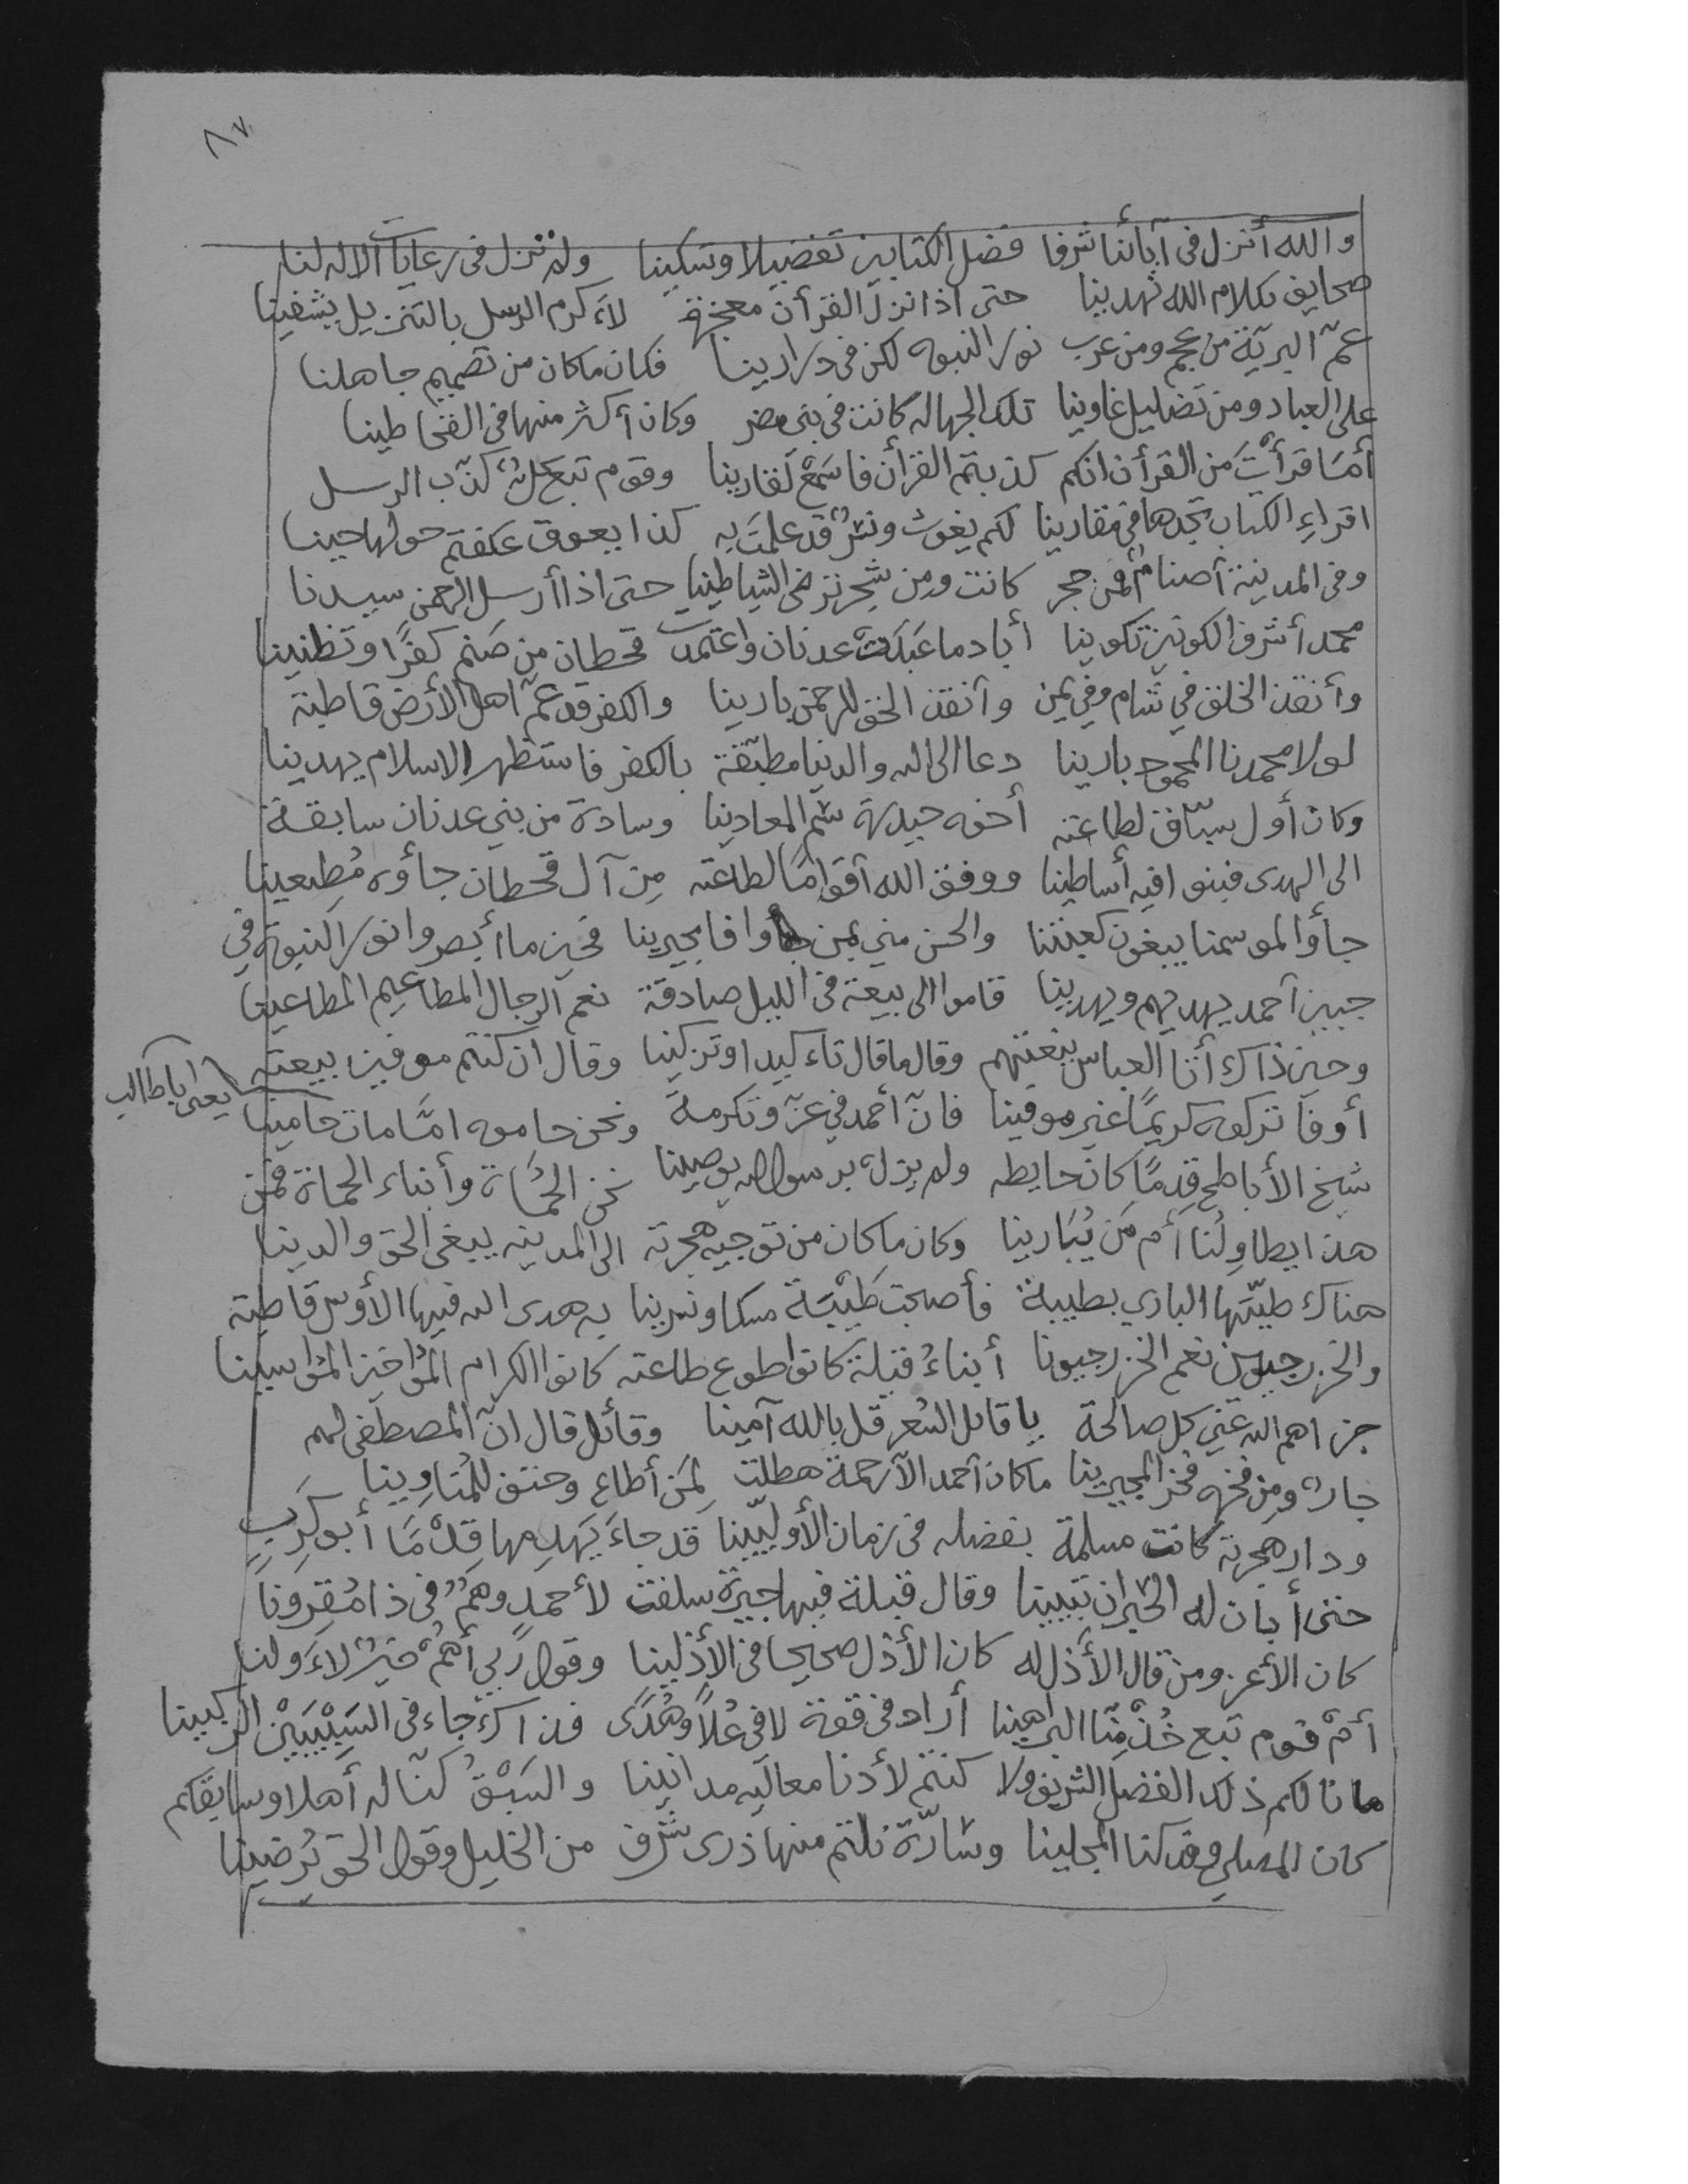 ٨٧
والله أنزل في آبائنا شرفا فضل الكتابين تفضيلا وتسكينا ولم تزل في رعايات الاله لنا
صحايف بكلام الله تهدينا حتى اذا نزل القرأن معجزة لاءكرم الرسل بالتنزيل يشفينا
عمّ البريّة من عجم ومن عرب نور النبوه لكن في درارينا فكان ما كان من تصميم جاهلنا
على العباد ومن تضليل غاوينا تلك الجهاله كانت في بني مضر وكان أكثر منها في القحاطينا
أمَا قرأتَ من القرأن انكم كذبتم القرأن فاسمَعْ لقارينا وقوم تبع كلٌ كذّب الرسل
اقراءِ الكتاب تجدها في مقارينا لكم يغوث ونسرٌ قد علمتَ به كذا يعوق عكفتم حولها حينا
وفي المدينة أصنامٌ فمن حجر كانت ومن شجر ترضى الشياطينا حتى اذا أرسل الرحمن سيدنا
محمد أشرف الكونين تكوينا أباد ما عَبَدَتْ عدنان واعتمدت قحطان من صَنمٍ كفرًا وتظنينا
وأنقذ الخلق في شام وفي يمن وأنقذ الحق للرحمن بارينا والكفر قد عمّ اهل الأرض قاطبة
لولا محمدنا المحمود بارينا دعا الى الله والدنيا مطبّقة بالكفر فاستظهر الاسلام يهدينا
وكان أول سبّاق لطاعته أخوه حيدرة سمّ المعادينا وسادة من بني عدنان سابقة
الى الهدى فبنوا فيه أساطينا ووفق الله أقوامًا لطاعته مِن آل قحطان جاؤه مُطِيعينا
جاؤا لموسمنا يبغون كعبتنا والحن مني بمن وافا مجيرينا فحين ما أبصروا نور النبوة في
جبين أحمد يهديهم ويهدينا قاموا الى بيعة في الليل صادقة نعم الرجال المطاعيم المطاعينا
وحين ذاك أتا العباس بيعتهم وقال ما قال تاءكيدا وتزكينا وقال ان كنتم موفين بيعته
أوفا تركوه كريمًا غير موفينا فانّ أحمد في عزّ وتكرمة ونحن حاموه امّا مات حامينا
يعني اباطالب
شيخ الأباطح قِدمًا كان حايطه ولم يزل برسول الله يوصينا نحن الحُمَاة وأبناء الحماة فمَن
هذا يطاوِلُنا أم مَن يُبَارينا وكان ما كان من توجيه هجرته الى المدينه يبغى الحق والدينا
هناك طيّبها الباري بطيبة فأصبحت طَيْبَة مسكا ونسرينا به هدى الله فيها الأوس قاطبة
والخزرجيون نعم الخزرجيونا أبناءُ قيلة كانوا طوع طاعته كانوا الكرام المُؤاخين المُؤاسينا
جزاهم الله عني كل صالحة يا قائل الشعر قل بالله آمينا وقائل قال انّ المصطفى لهم
جارٌ ومن فخره فخر المجيرينا ما كان أحمد الاّ رحمة هطلت لِمَن أطاع وحتف للمُناوِينا
ودار هجرته كانت مسلمة بفضله في زمان الأوليّينا قد جاءَ يَهدِمها قِدْمًا أبو كَرِبٍ
حتى أبان له الحبران تبيينا وقال قيلة فيها جيرة سلفت لأحمدٍ وهمُ في ذا مُقِرونا
كان الأعز ومن قال الأذل له كان الأذل صحيحا في الأذلينا وقول ربي أهمْ خيرٌ لاءَولنا
أمْ قوم تبع خُذْ مِنّا البراهينا أراد في قوة لا في عُلاً وهُدًى فذاك جاء في السَيْبَيْن
ما نالكم ذلك الفضل الشريف ولا كنتم لأدنا معاليه مدانينا والسَبْقُ كنّا له أهلا وسابقكم
كان المصلي وقد كنا المجلينا وسارّة نلتم منها ذرى شرف من الخليل وقول الحق يُرضينا